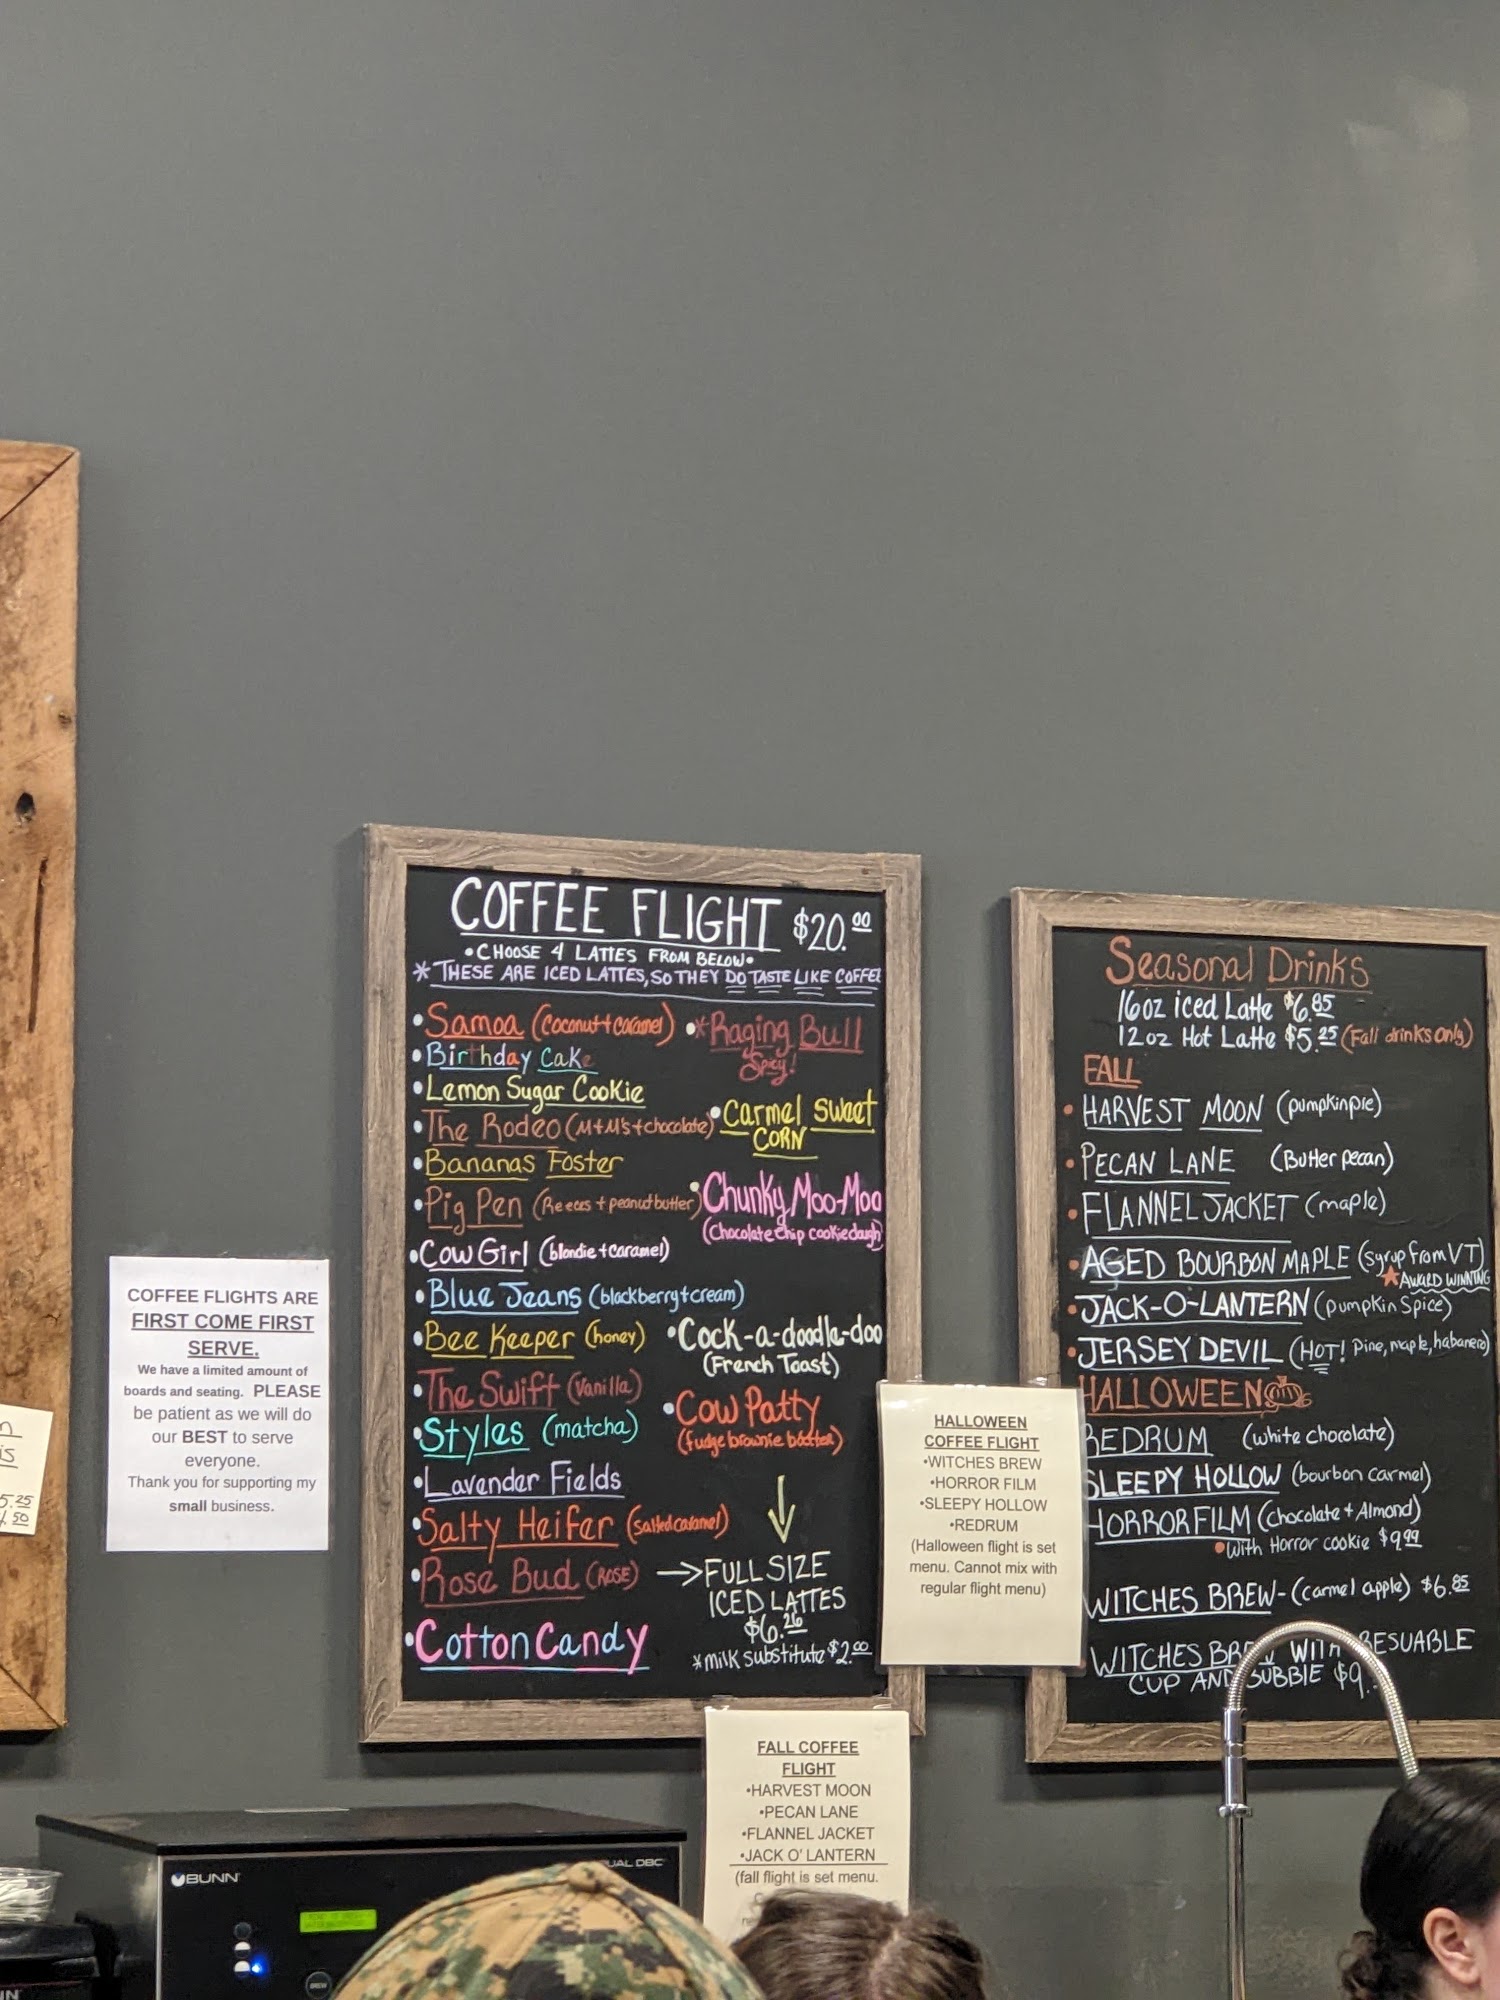 COFFEE FLIGHTS ARE
FIRST COME FIRST
SERVE.
We have a limited amount of
boards and seating. PLEASE
be patient as we will do
our BEST to serve
everyone.
Thank you for supporting my
small business.
5.25
4.50
COFFEE FLIGHT $20.00
•CHOOSE 4 LATTES FROM BELOW•
*THESE ARE ICED LATTES, SO THEY DO TASTE LIKE COFFEE
•Samoa (Coconut+Caramel)
•Birthday Cake
•Lemon Sugar Cookie
•The Rodeo (M+M's+chocolate)
•Bananas Foster
•Pig Pen (Reeces + peanutbutter)
•Cow Girl (blondie+caramel)
•Blue Jeans (blackberry+cream)
•Bee Keeper (honey)
•The Swift (Vanilla)
•Styles (matcha)
•Lavender Fields
•Salty Heifer (Salted caramel)
•Rose Bud (ROSE)
•Cotton Candy
•*Raging Bull
Spicy!
•Carmel Sweet
CORN
•Chunky Moo-Moo
(Chocolate chip cookie dough)
•Cock-a-doodle-doo
(French Toast)
•Cow Patty
(fudge brownie batter)
FULL SIZE
ICED LATTES
$6.26
*milk substitute $2.00
HALLOWEEN
COFFEE FLIGHT
•WITCHES BREW
•HORROR FILM
•SLEEPY HOLLOW
•REDRUM
(Halloween flight is set
menu. Cannot mix with
regular flight menu)
FALL COFFEE
FLIGHT
•HARVEST MOON
•PECAN LANE
•FLANNEL JACKET
•JACK O' LANTERN
(fall flight is set menu.
Seasonal Drinks
16oz iced Latte $6.85
12oz Hot Latte $5.25 (Fall drinks only)
FALL
•HARVEST MOON (pumpkin pie)
•PECAN LANE (Butter pecan)
•FLANNEL JACKET (maple)
•AGED BOURBON MAPLE (syrup from VT)
★AWARD WINNING
•JACK-O-LANTERN (pumpkin Spice)
•JERSEY DEVIL (HOT! Pine, maple, habanero)
HALLOWEEN
REDRUM (white chocolate)
SLEEPY HOLLOW (bourbon carmel)
HORROR FILM (chocolate + Almond)
•With Horror cookie $9.99
WITCHES BREW- (carmel apple) $6.85
WITCHES BREW WITH RESUABLE
CUP AND BUBBIE $9.
BUNN
UAL DBC